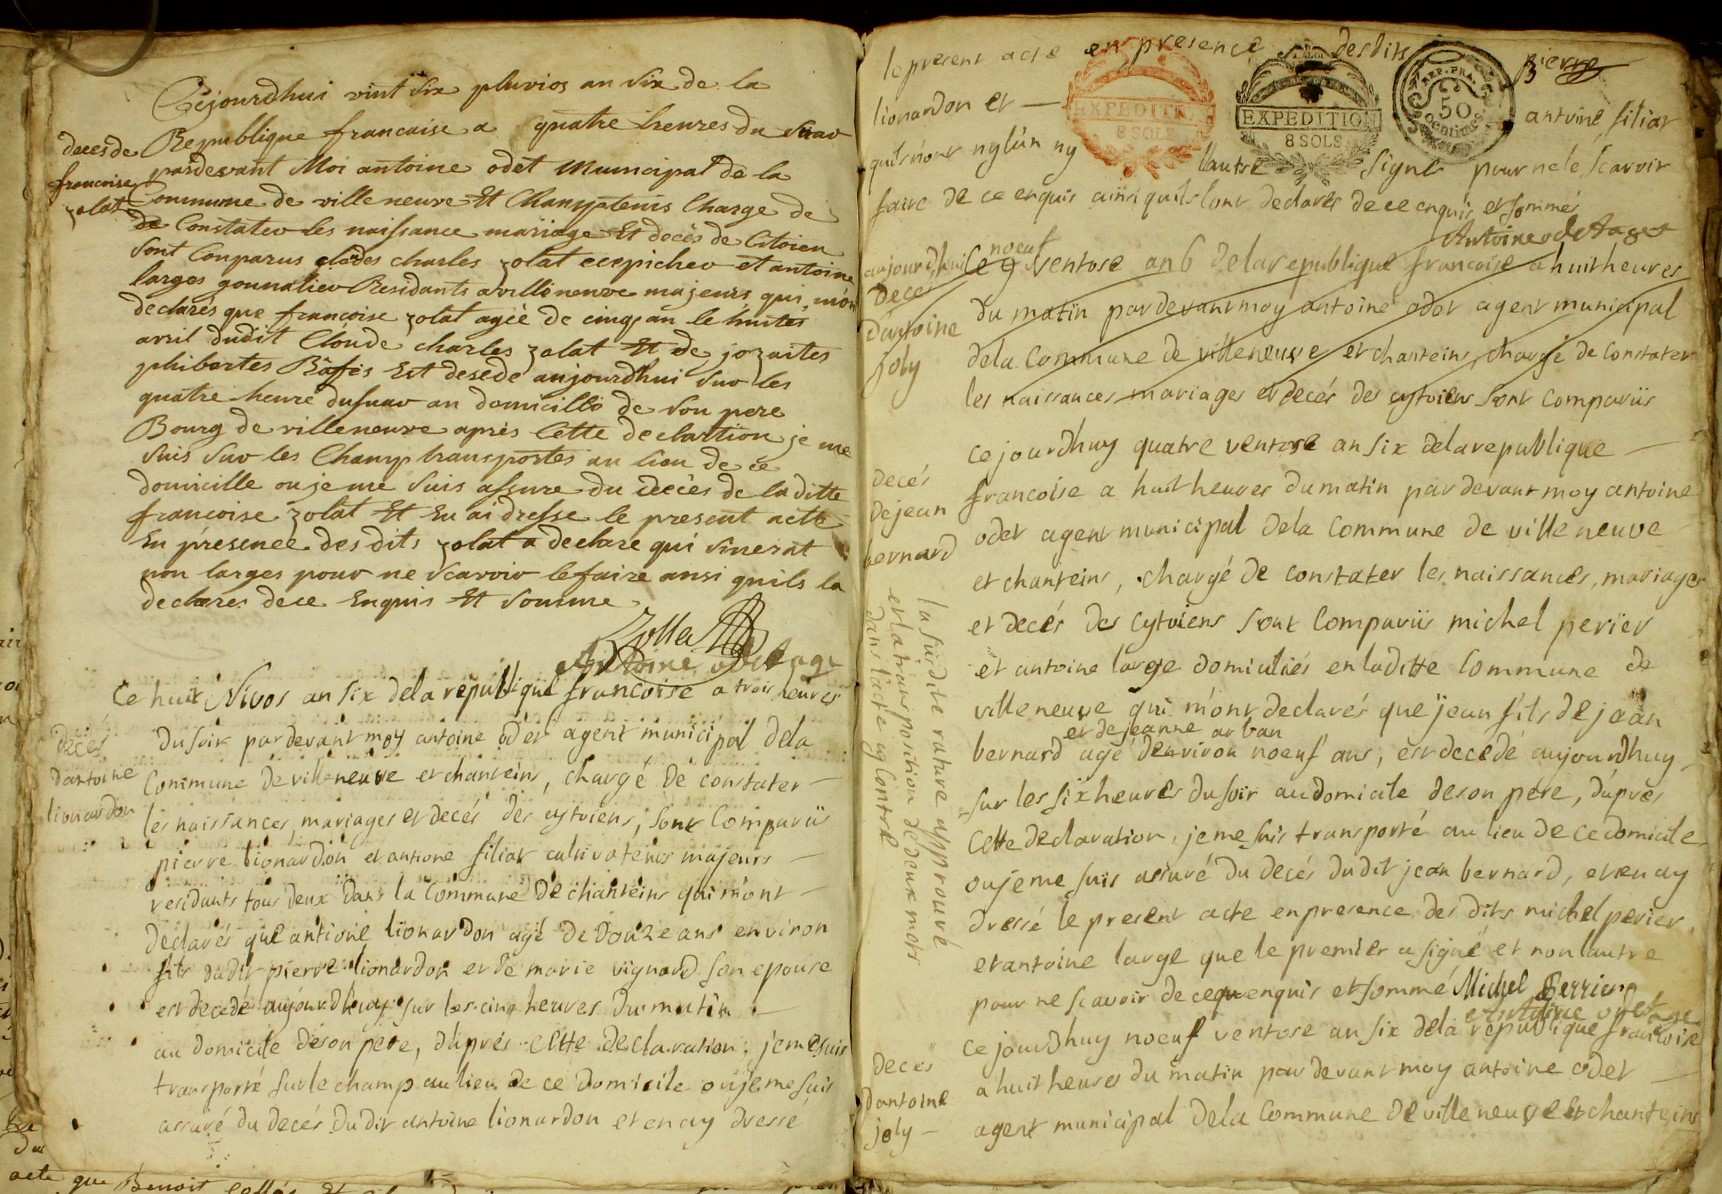 Cejourdhui vint six pluvios an six de la
Republique francaise a quatre heures du soir
pardevant Moi antoine odet Municipal de la
Commune de villeneuve Et Chanteins Charge de
de Constater les naissance mariage Et decès de Citoien
sont Conparus
charles zolat et antoine
larges Residants a villeneuve majeurs qui mon
declarés que francoise zolat agée de cinq an le huites
avril dudit Cloude charles zolat Et de
phibertes Est desede aujourdhui sur les
quatre heure du suar au domicille de son pere
Bourg de villeneuve après Cette declartion je me
suis sur les Champ transportes au lieu de ce
domicille ou je me suis assure du decès de la ditte
francoise zolat Et En ai dresse le present acte
En présence des dits zolat a declare qui sinerat
non larges pour ne scavoir le faire ansi quils la
declares dece Enquis Et somme
Zolla
Antoine odet age
deces de
francoise
zolat
Ce huit Nivos an six de la republique francoise a trois heures
du soir pardevant moy antoine odet agent municipal dela
Commune de villeneuve et chanteins, chargé de constater
les naissances, mariages et decés des cytoiens, sont Comparüs
pierre lionardon et antione filiat cultivateurs majeurs
residants tous deux dans la Commune de chanteins qui m'ont
declarés que antione lionardon agé de douze ans environ
fils dudit pierre lionardon et de marie vignard son epouse
est decedé aujourdhuy sur les cinq heures du matin
au domicile de son pere, d'après cette declaration, je me suis
transporté sur le champ au lieu de ce domicile ou je me suis
assuré du decés dudit antoine lionardon et en ay dressé
decés
dantoine
lionardon
acte que Benoit
le present acte en presence desdits pierre
lionardon et antoine filiat
EXPEDITION
8 SOLS
EXPEDITION
8 SOLS
REP. FRA.
50
centimes
3
qui n'ont ny l'un ny l'autre signé pour ne le scavoir
faire de ce enquis ainsi quils l'ont declarés de ce enquis et sommés
Antoine odet agent
aujourdhui Ce 9 noeuf ventose an 6 dela republique francoise a huit heures
du matin pardevant moy antoine odet agent municipal
dela Commune de villeneuve et chanteins, chargé de constater
les naissances mariages et decés des cytoiens sont comparüs
deces
d'antoine
joly
ce jourdhuy quatre ventose an six dela republique
francoise a huit heures du matin pardevant moy antoine
odet agent municipal dela Commune de villeneuve
et chanteins, chargé de constater les naissances, mariages
et decés des cytoiens sont Comparüs michel perier
et antoine large domiciliés en laditte Commune de
villeneuve qui m'ont declarés que jean fils de jean
et de jeanne arban
bernard agé denviron noeuf ans, est decedé aujourdhuy
sur les six heures du soir au domicile de son pere, d'après
Cette declaration, je me suis transporté au lieu de ce domicile
ou je me suis assuré du decés dudit jean bernard, et en ay
dressé le present acte en presence des dits michel perier
et antoine large que le premier a signé et non l'autre
pour ne scavoir de ce enquis et sommé Michel Perrier
Antoine odet age
decés
de jean
bernard
la susdite rature approuvé
et la transposition de deux mots
dans l'acte cy contre
ce jourdhuy noeuf ventose an six dela republique francoise
a huit heures du matin pardevant moy antoine odet
agent municipal dela Commune de villeneuve et chanteins
deces
d'antoine
joly